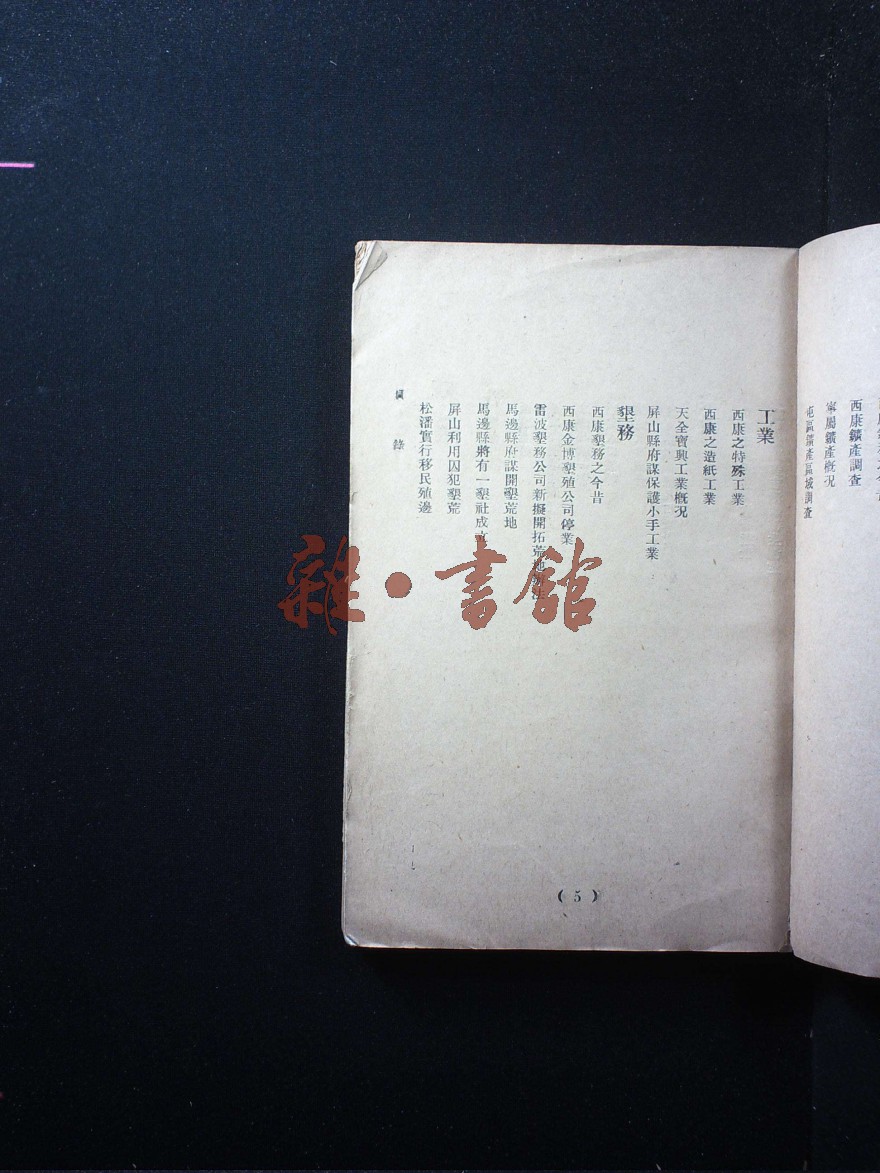 西康鑛產調查
寧屬鑛產概况
屯區鑛產區域調查
工業
西康之特殊工業
西康之造紙工業
天全寶興工業概况
屏山縣府謀保護小手工業
墾務
西康墾務之今昔
西康金博墾殖公司停業
雷波墾務公司新擬開拓荒地辦法
馬邊縣府謀開墾荒地
馬邊縣將有一墾社成立
屏山利用囚犯墾荒
松潘實行移民殖邊
錄
(5)
雜·書館